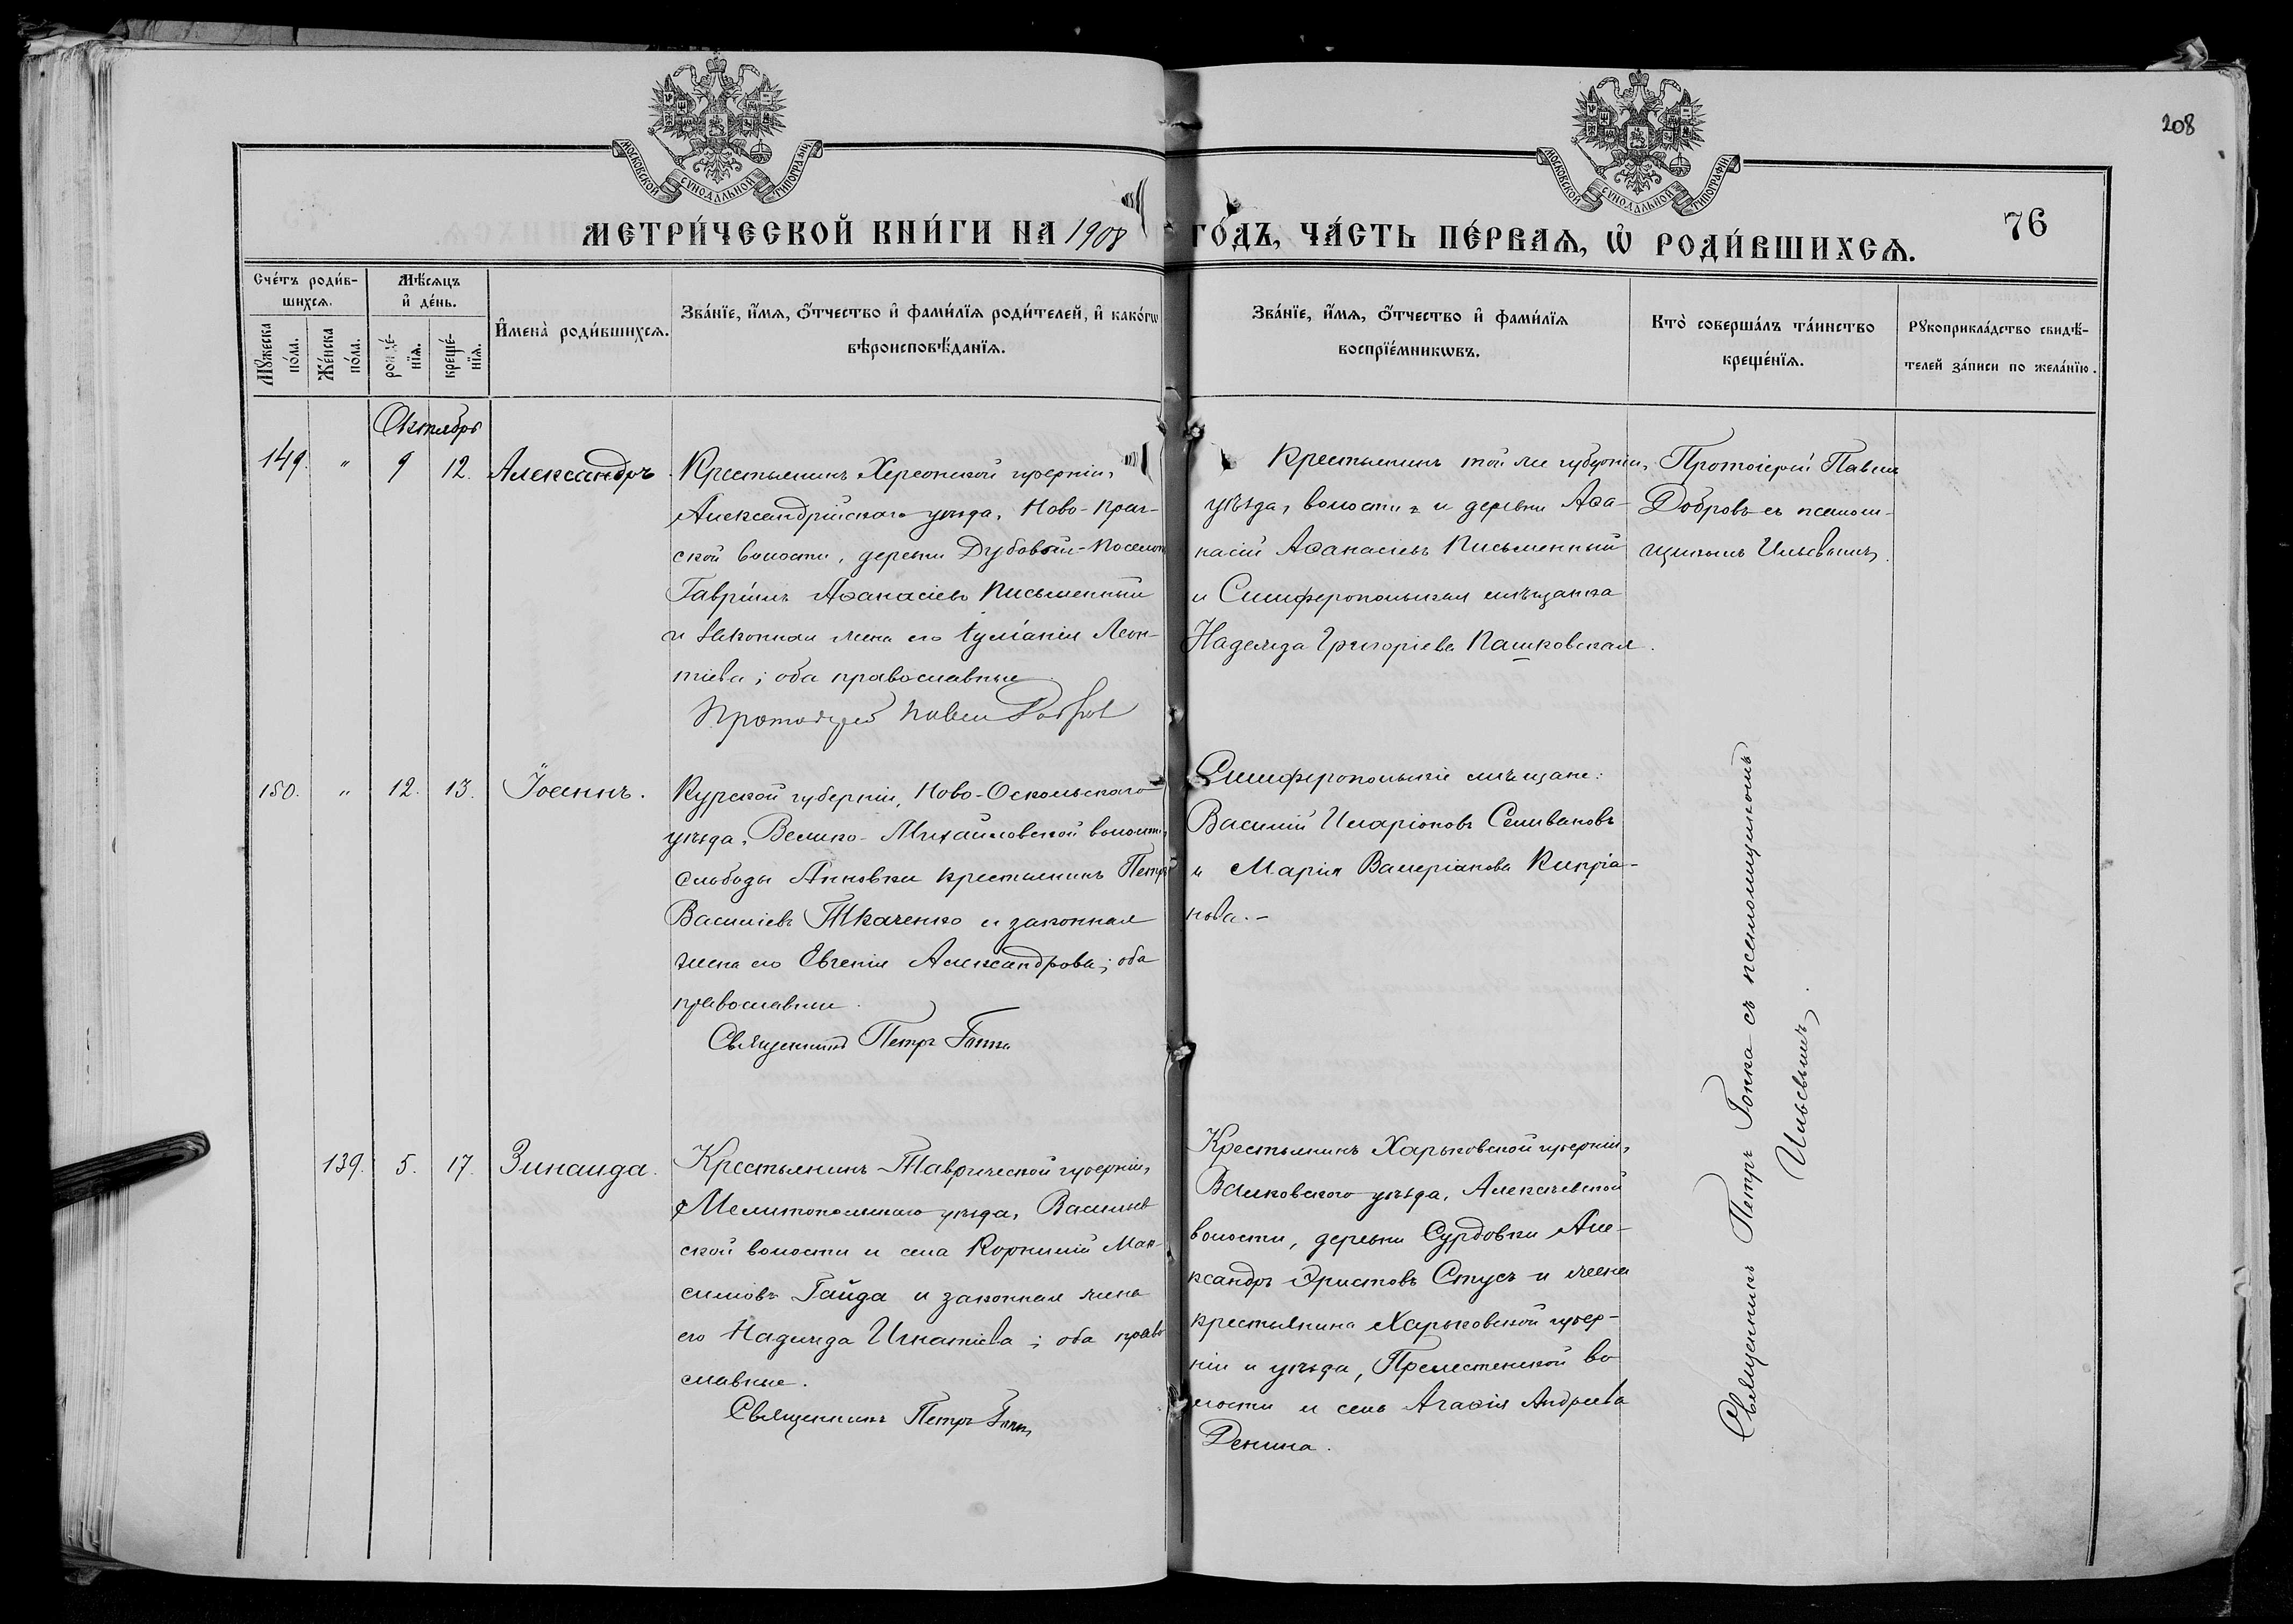 208
МОСКОВСКОЙ СѴНОДАЛЬНОЙ ТИПОГРАФІИ
МОСКОВСКОЙ СѴНОДАЛЬНОЙ ТИПОГРАФІИ
МЕТРИ́ЧЕСКОЙ КНИ́ГИ НА 1908 ГО́ДЪ, ЧА́СТЬ ПЕ́РВАѦ, Ѡ РОДИ́ВШИХСѦ.
76
Сче́тъ роди́в-
шихсѧ.
Мѣ́сѧцъ
и҆ де́нь.
Мꙋ́жеска
по́ла.
Же́нска
по́ла.
рожде́-
нїѧ.
креще́-
нїѧ.
И҆мена̀ роди́вшихсѧ.
Зва́нїе, и҆́мѧ, ѻ҆́тчество и҆ фами́лїѧ роди́телей, и҆ како́гѡ
вѣроисповѣ́данїѧ.
Зва́нїе, и҆́мѧ, ѻ҆́тчество и҆ фами́лїѧ
воспрїе́мникѡвъ.
Кто̀ соверша́лъ та́инство
креще́нїѧ.
Рꙋкоприкла́дство свидѣ́-
телей за́писи по жела́нїю.
Октябрь
149. " 9 12. Александръ.
Крестьянинъ Херсонской губерніи,
Александрійскаго уѣзда, Ново-Праж-
ской волости, деревни Дубовый-Поселокъ
Гавріилъ Аѳанасіевъ Письменный
и законная жена его Іуліанія Леон-
тіева; оба православные.
Протоіерей Павелъ Добровъ
Крестьянинъ той же губерніи,
уѣзда, волости и деревни Аѳа-
насій Аѳанасіевъ Письменный
и Симферопольская мѣщанка
Надежда Григоріева Пашковская.
Протоіерей Павелъ
Добровъ съ псалом-
щикомъ Ильевымъ.
150. " 12. 13. Іоаннъ.
Курской губерніи, Ново-Оскольскаго
уѣзда, Велико-Михайловской волости,
слободы Анновки крестьянинъ Петръ
Василіевъ Ткаченко и законная
жена его Евгенія Александрова; оба
православные.
Священникъ Петръ Гопка
Симферопольскіе мѣщане:
Василій Иларіоновъ Селивановъ
и Марія Валеріанова Кипріа-
нова.-
139. 5. 17. Зинаида.
Крестьянинъ Таврической губерніи,
Мелитопольскаго уѣзда, Васильев
ской волости и села Корнилій Мак-
симовъ Гайда и законная жена
его Надежда Игнатіева; оба право
славные.
Священникъ Петръ Гопка
Крестьянинъ Харьковской губерніи,
Валковскаго уѣзда, Алексѣевской
волости, деревни Сурдовки Але-
ксандръ Христовъ Стусъ и жена
крестьянина Харьковской губер-
ніи и уѣзда, волости и села Агаѳія Андреева
Денина.
Священникъ Петръ Гопка съ псаломщикомъ
Ильевымъ.